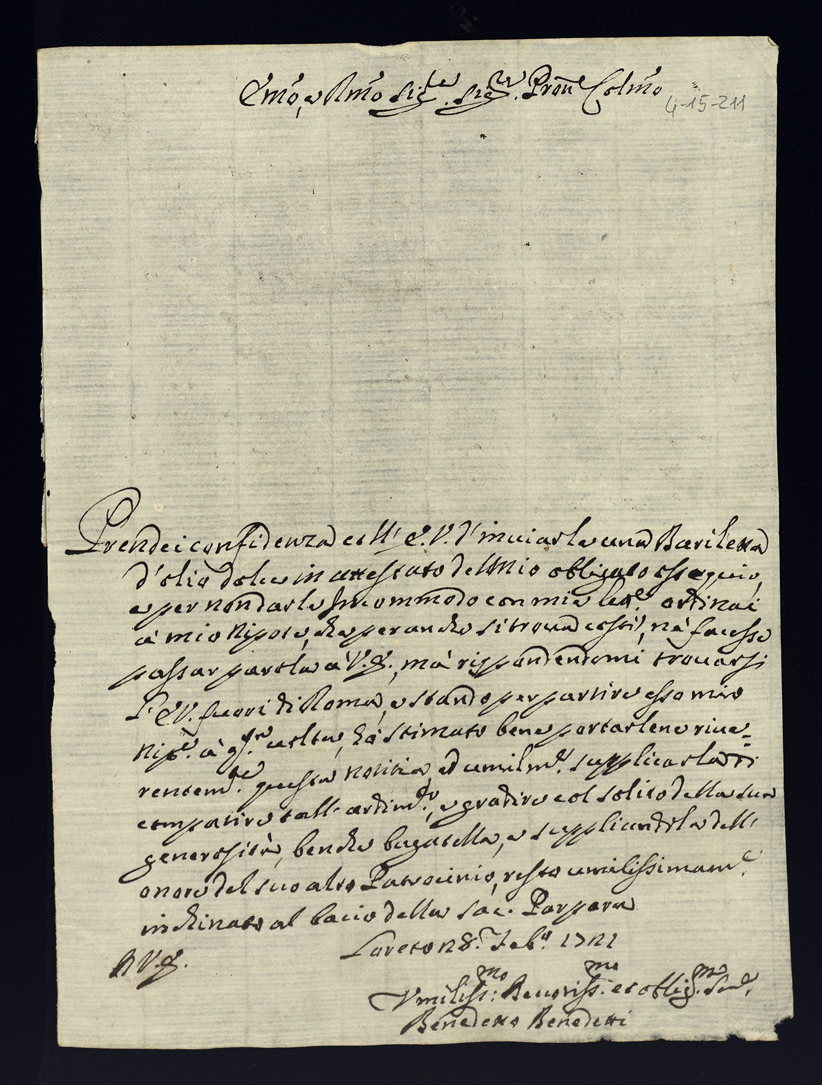 Emo, e Rmo Sigre. Sigre. Pron Colmo
4-15-211
Prendei confidenza coll' E.V. d'inviarle una Bariletta
d'olio dolce in attestato del mio obligato ossequio,
e per non darle Incommodo con mie ordinai
à mio Nipote, che per anche si trova costì, ne facesse
passar parola à V.E., mà rispondendomi trovarsi
l'EV. fuori di Roma, e stando per partire esso mio
Nipe. à volta, hà stimato bene portarlene rive=
rentemte. questa notitia, ed umilme. supplicarla di
compatire tall' ardimto, e gradire col solito della sua
generosità, benche bagatella, e supplicandola dell'
onore del suo alto Patrocinio, resto umilissimame.
inchinato al bacio della Sac. Porpora
Loreto 28. Feb.o 1721
R V.E.
Vmiliss:mo Devotiss:mo et oblig.mo Ser.
Benedetto Benedetti